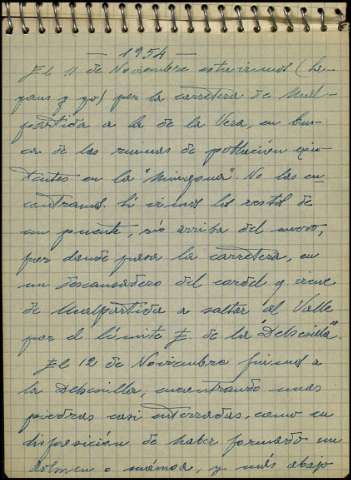 — 1954 —
El 11 de Noviembre estuvimos (
y yo) por la carretera de Mal-
partida a la de la Vera, en bus-
ca de las ruinas de población exis-
tentes en la "Minguna". No las en-
contramos. Sí vimos los restos de
un puente, río arriba del nuevo,
por donde pasa la carretera, en
un descansadero del cordel q. viene
de Malpartida a saltar al Valle
por el límite E. de la "Dehesilla".
El 12 de Noviembre fuimos a
la Dehesilla, encontrando unas
piedras casi enterradas, como en
disposición de haber formado un
dolmen o mámoa, y más abajo